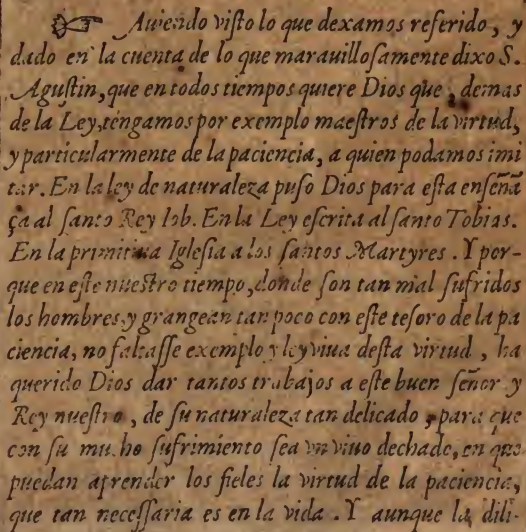 ☞ Auiendo viſto lo que dexamos referido, y
dado en la cuenta de lo que marauilloſamente dixo S.
Aguſtin, que en todos tiempos quiere Dios que, demas
de la Ley, tengamos por exemplo maeſtros de la virtud,
y particularmente de la paciencia, a quien podamos imi
tar. En la ley de naturaleza puſo Dios para eſta enſeñã
ça al ſanto Rey Iob. En la Ley eſcrita al ſanto Tobias.
En la primitiua Igleſia a los ſantos Martyres. Y por-
que en eſte nueſtro tiempo, donde ſon tan mal ſufridos
los hombres, y grangean tan poco con eſte teſoro de la pa
ciencia, no faltaſſe exemplo y ley viua deſta virtud, ha
querido Dios dar tantos trabajos a eſte buen ſeñor y
Rey nueſtro, de ſu naturaleza tan delicado, para que
con ſu mucho ſufrimiento ſea vn viuo dechado, en que
puedan aprender los fieles la virtud de la paciencia,
que tan neceſſaria es en la vida. Y aunque la dili-